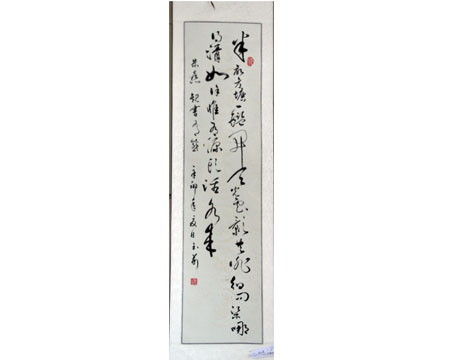 半亩方塘一鑑開天光雲影共徘徊问渠哪
得清如许惟有源头活水来
朱熹观書有感
辛卯年夏日